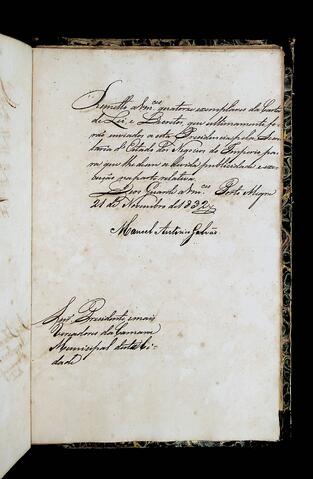 Remetto a Vm.ces quatorze exemplares da Carta
de Lei, e Decretos, que ultimamente fo-
rão enviados a esta Presidencia pela Secre-
taria d'Estado dos Negocios do Imperio pa-
ra que lhe dêem a devida publicidade e exe-
cução na parte relativa.
Deos Guarde a Vm.ces Porto Alegre
21 de Novembro de 1832
Manoel Antonio Galvão
Snr.s Presidente, e mais
Vereadores da Camara
Municipal desta Ci-
dade